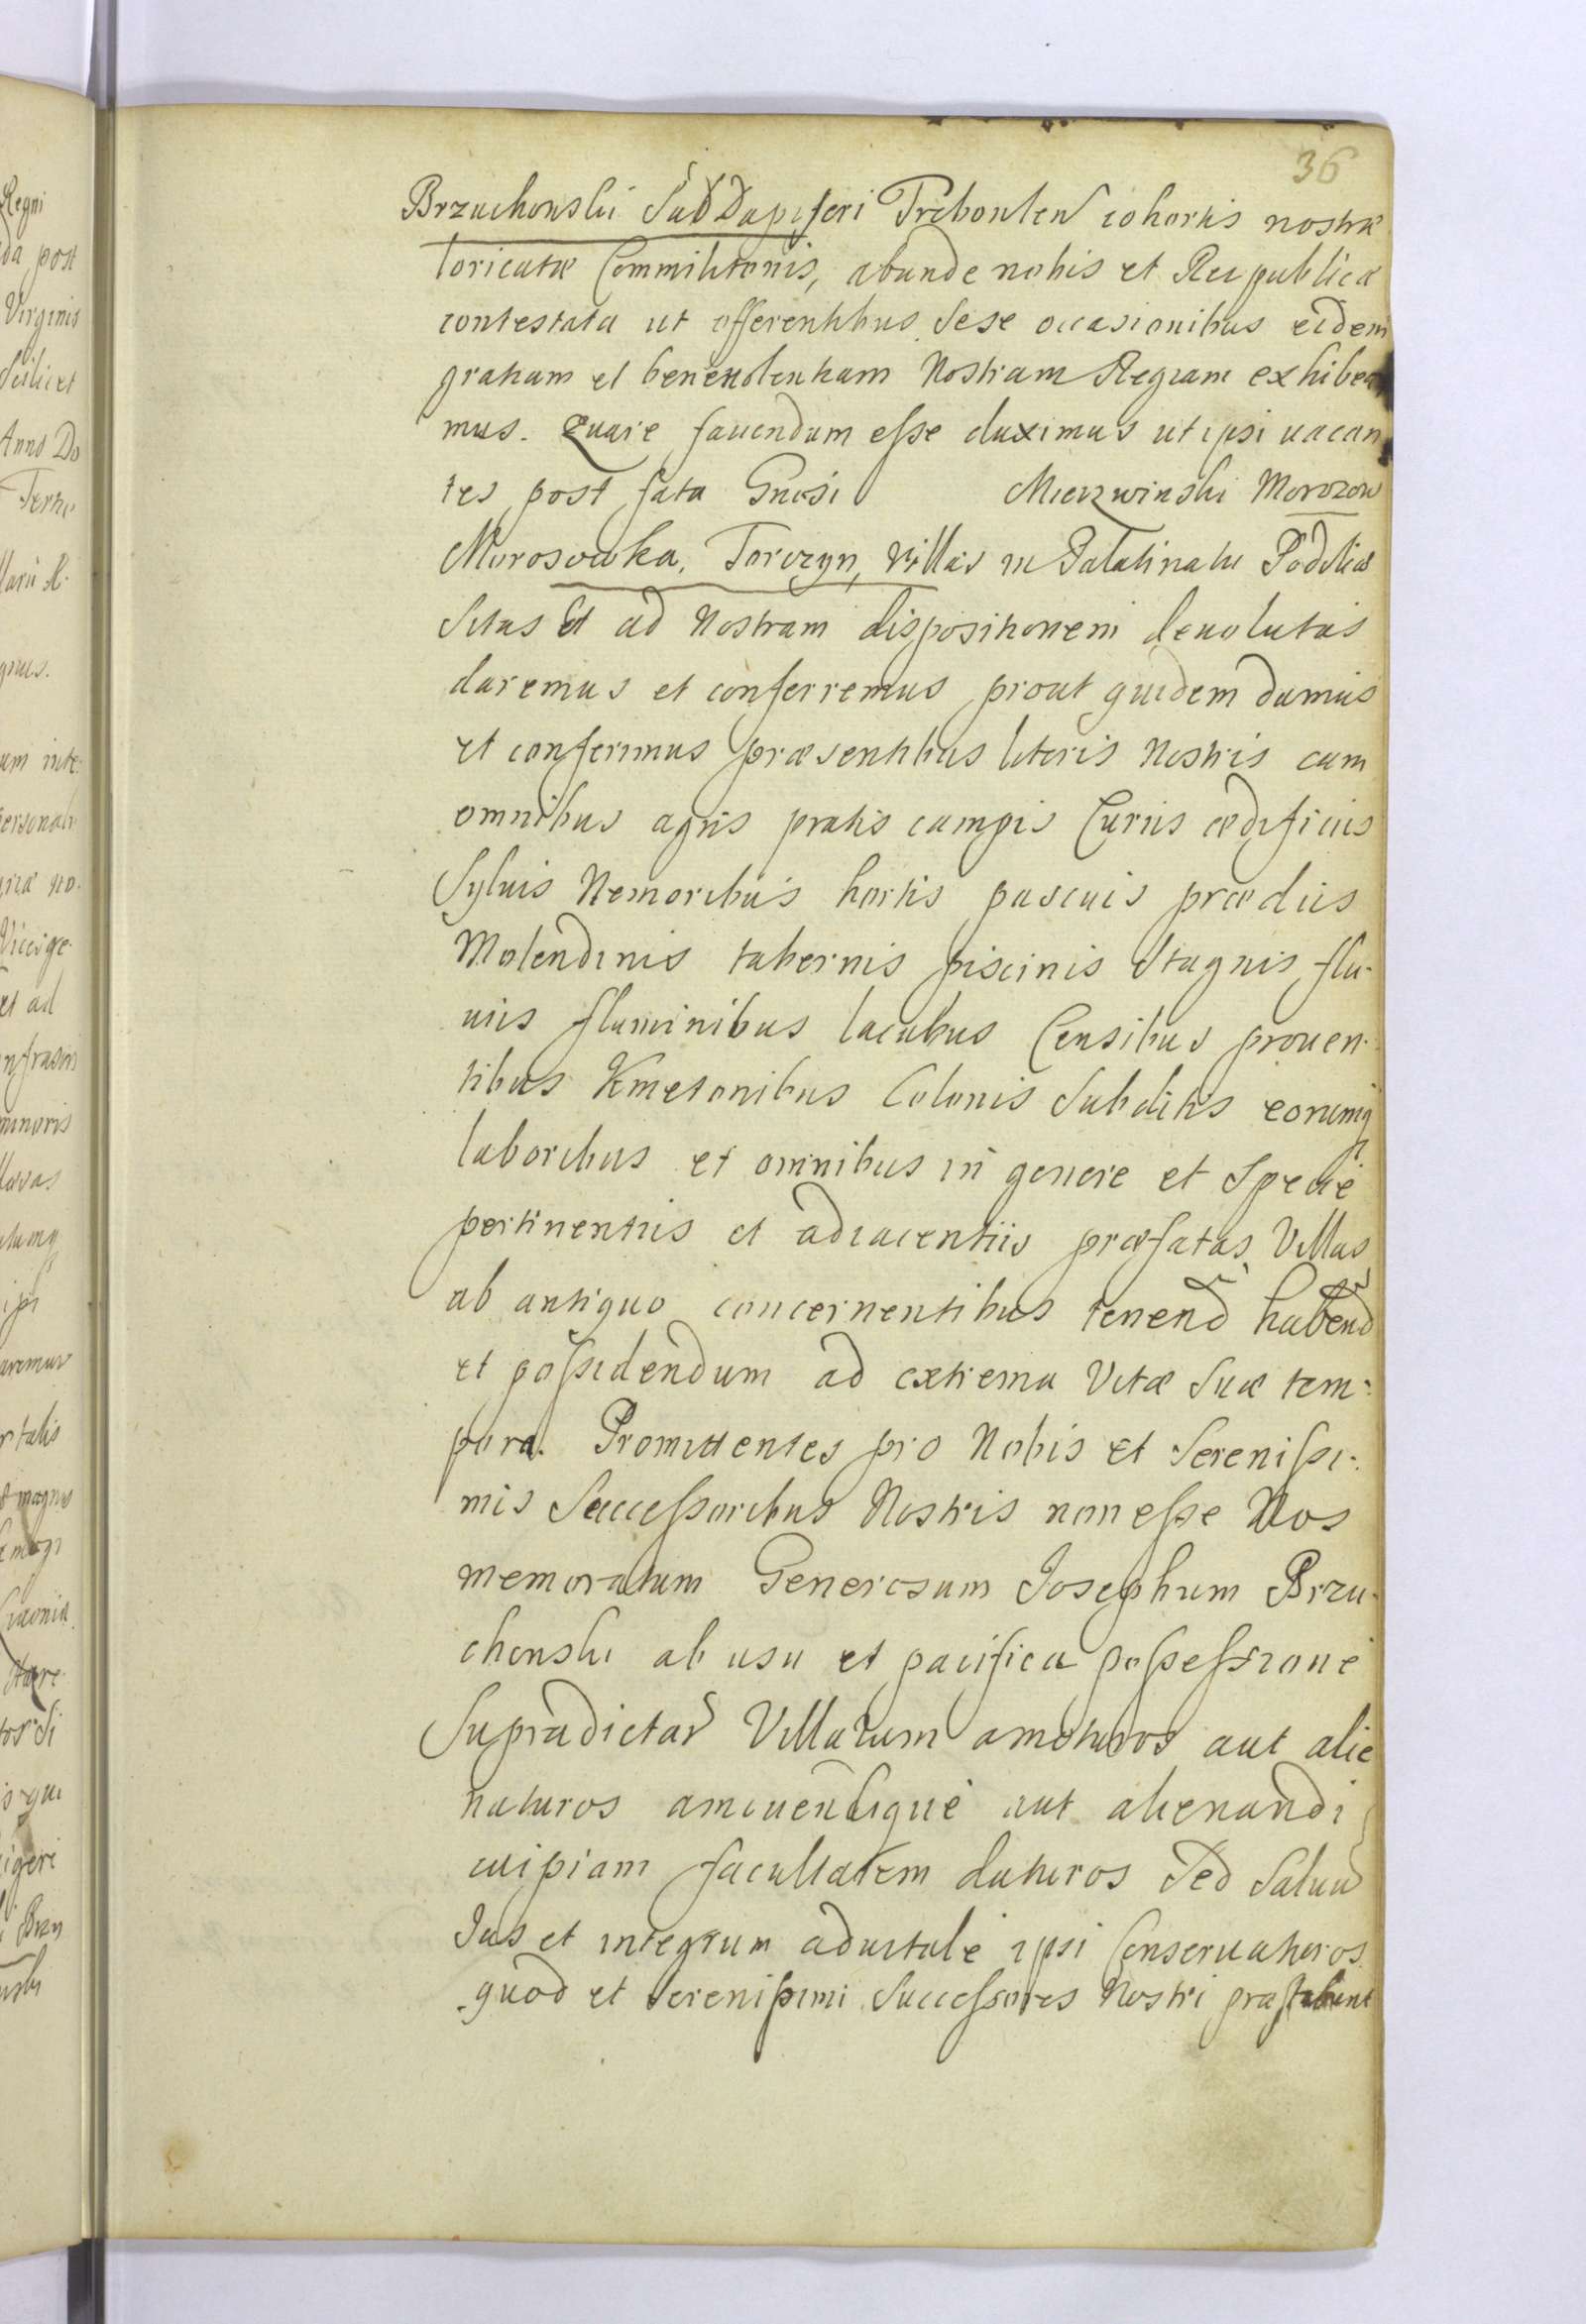 36
Brzuchonski SubDapiferi Trebowlen cohortis nostræ
loricatæ Commilitonis, abunde nobis et Reipublicæ
contestata ut offerentibus sese occasionibus eidem
gratiam et beneuolentiam Nostram Regiam exhibea
mus. Quare fauendum esse duximus ut ipsi uacan
tes post fata Gnosi Mierzwinski Morozow
Morosowka, Torczyn, villas in Palatinatu Podoliæ
Sitas et ad Nostram dispositionem deuolutas
daremus et conferremus prout quidem damus
et conferimus præsentibus literis Nostris cum
omnibus agris pratis campis Curiis ædificiis
Syluis Nemoribus hortis pascuis prædiis
Molendinis tabernis piscinis Stagnis flu-
uiis fluminibus lacubus Censibus prouen-
tibus Kmetonibus Colonis Subditis eorumq
laboribus et omnibus in genere et Specie
pertinentiis et adiacentiis præfatas Villas
ab antiquo concernentibus tenend habend
et possidendum ad extrema Vitæ Suæ tem-
pora. Promittentes pro Nobis et Serenissi-
mis Successoribus Nostris non esse Nos
memoratum Generosum Josephum Brzu-
chonski ab usu et pacifica possessione
Supradictar Villarum amoturos aut alie
naturos amouendique aut alienandi
cuipiam facultatem daturos Sed Saluu
Jus et integrum aduitale ipsi Conseruaturos
quod et Serenissimi Successores Nostri præstabunt
Regni
da post
Virginis
Scilicet
Anno Do
gnus.
um inte-
personali
Vicesge-
et ad
minoris
ipsi
rtalis
magnus